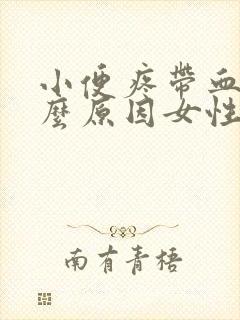 小便疼帶血
麼原因女性
南有青梧